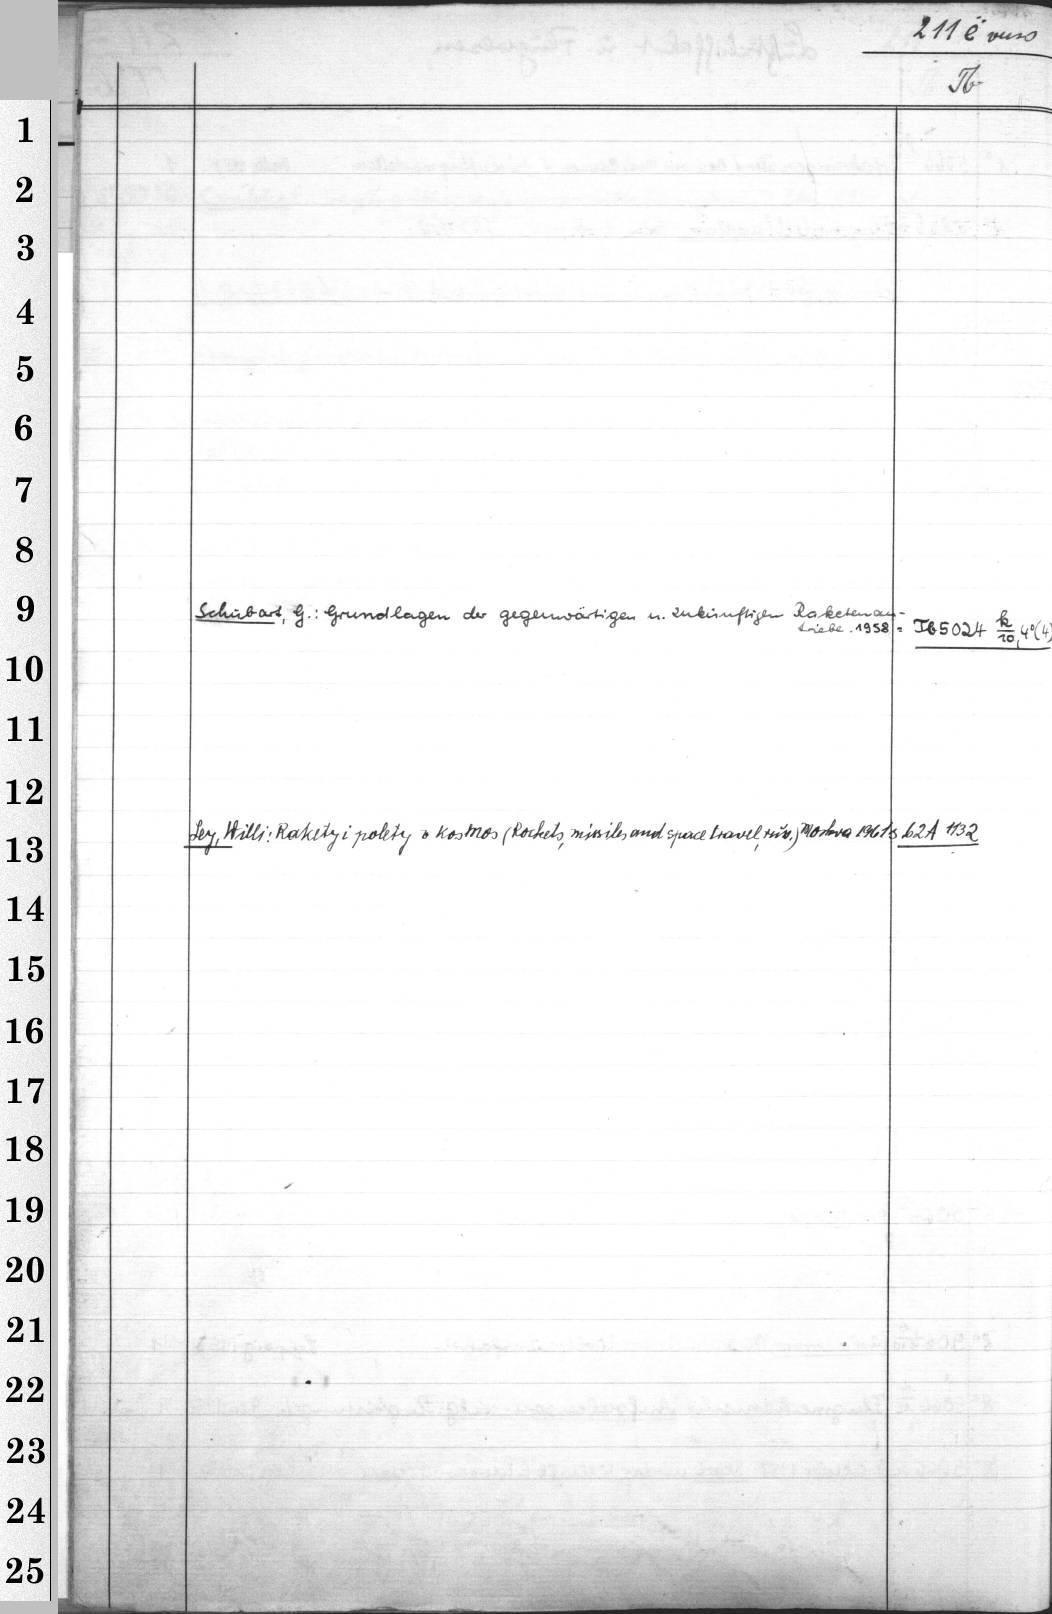 211 ë verso
Tb
1
2
3
4
5
6
7
8
9
Schubart, G.: Grundlagen der gegenwärtigen u. zukünftigen Raketenan-
triebe. 1958 = Tb 5024 k/10, 4°(4)
10
11
12
Ley, Willi: Rakety i polety v kosmos (Rockets, missiles and space travel, ) Moskva 1961 62A 1132
13
14
15
16
17
18
19
20
21
22
23
24
25